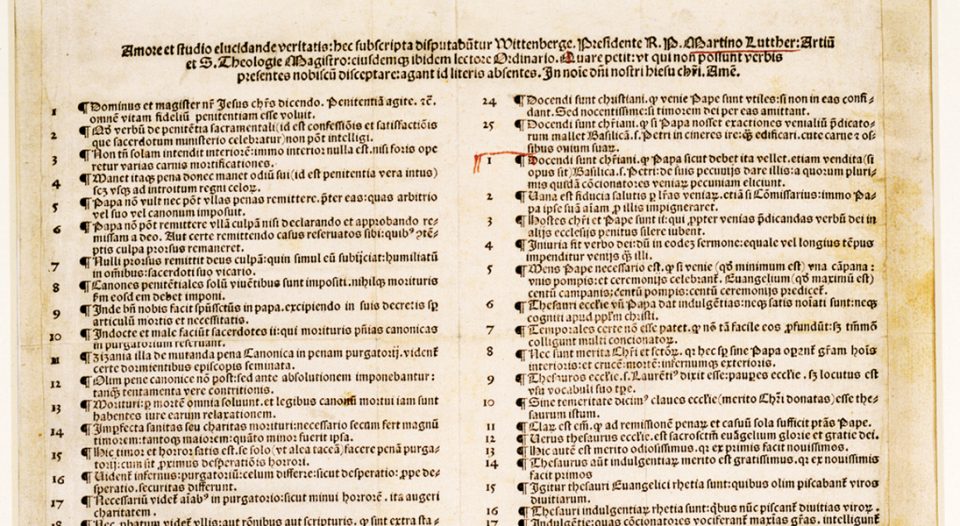 Amore et studio elucidande veritatis: hec subscripta disputabũtur Wittenberge. Presidente R. P. Martino Lutther: Artiũ
et S. Theologie Magistro: eiusdemq̃ ibidem lectore Ordinario. Quare petit: vt qui non possunt verbis
presentes nobiscũ disceptare: agant id literis absentes. In noĩe dñi nostri hiesu chr̃i. Amẽ.
1 ¶ Dominus et magister nr̃ Jesus chr̃s dicendo. Penitentiã agite. ꝛẽ.
omnẽ vitam fideliũ penitentiam esse voluit.
2 ¶ Qd̃ verbũ de penitẽtia sacramentali (id est confessiõis et satisfactiõis
que sacerdotum ministerio celebratur) non põt intellig.
3 ¶ Non tñ solam intendit interiorẽ: immo interior nulla est. nisi foris ope
retur varias carnis mortificationes.
4 ¶ Manet itaq̃ pena donec manet odiũ sui (id est penitentia vera intus)
scꝫ vsq̃ ad introitum regni celoꝝ.
5 ¶ Papa nõ vult nec põt vllas penas remittere. p̃ter eas: quas arbitrio
vel suo vel canonum imposuit.
6 ¶ Papa nõ põt remittere vllã culpã nisi declarando et approbando re-
missam a deo. Aut certe remittendo casus reservatos sibi: quibꝰ ꝯtẽ-
ptis culpa prorsus remaneret.
7 ¶ Nulli prorsus remittit deus culpã: quin simul eũ subijciat: humiliatũ
in omnibus: sacerdoti suo vicario.
8 ¶ Canones penitẽtiales solũ viuẽtibus sunt impositi. nihilq̃ morituris
ẽm eosdẽ debet imponi.
9 ¶ Inde bñ nobis facit spũssctũs in papa. excipiendo in suis decretis sp̃
articulũ mortis et necessitatis.
10 ¶ Indocte et male faciũt sacerdotes ii: qui morituris pñias canonicas
in purgatorium reseruant.
11 ¶ Zizania illa de mutanda pena Canonica in penam purgatorij. vident̃
certe dormientibus episcopis seminata.
12 ¶ Olim pene canonice nõ post: sed ante absolutionem imponebantur:
tanq̃ tentamenta vere contritionis.
13 ¶ Morituri: ꝑ mortẽ omnia soluunt. et legibus canonũ mortui iam sunt
habentes iure earum relaxationem.
14 ¶ Imꝑfecta sanitas seu charitas morituri: necessario secam fert magnũ
timorem: tantoq̃ maiorem: quãto minor fuerit ipsa.
15 ¶ Hic timor et horror satis est. se solo (vt alea taceã) facere penã purga-
torij: cum sit ꝓximus desperatiõis horrori.
16 ¶ Vident̃ infernus: purgatoriũ: celum differre: sicut desperatio: ꝓpe de-
speratio. securitas differunt.
17 ¶ Necessariũ videt̃ aĩabꝰ in purgatorio: sicut minui horrorẽ. ita augeri
charitatem.
18 ¶ Nec ꝓbatum videt̃ vllis: aut rõnibus aut scripturis. ꝙ sint extra sta-
24 ¶ Docendi sunt christiani. ꝙ venie Pape sunt vtiles: si non in eas confi-
dant. Sed nocentissime: si timorem dei per eas amittant.
25 ¶ Docendi sunt chr̃iani. ꝙ si Papa nosset exactiones venialiũ p̃dicato-
rum mallet Basilicã. s. Petri in cineres ire: q̃ edificari. cute carne ⁊ os-
sibus ouium suaꝝ.
1 ¶ Docendi sunt chr̃iani. ꝙ Papa sicut debet ita vellet. etiam vendita (si
opus sit) Basilica. s. Petri: de suis pecunijs dare illis: a quoꝝ pluri-
mis quidã cõcionatores veniaꝝ pecuniam eliciunt.
2 ¶ Vana est fiducia salutis ꝑ lr̃as veniaꝝ. etiã si Cõmissarius: immo Pa-
pa ipse suã aĩam ꝓ illis impigneraret.
3 ¶ Hostes chr̃i et Pape sunt ii: qui ꝓpter venias p̃dicandas verbũ dei in
alijs ecclesijs penitus silere iubent.
4 ¶ Iniuria fit verbo dei: dũ in eodeꝫ sermone: equale vel longius tẽpus
impenditur venijs q̃ illi.
5 ¶ Mens Pape necessario est. ꝙ si venie (qd̃ minimum est) vna cãpana:
vnis pompis: et ceremonijs celebrant̃. Euangelium (qd̃ maximũ est)
centũ campanis: centũ pompis: centũ ceremonijs predicet̃.
6 ¶ Thesauri eccl̃ie vñ Papa dat indulgẽtias: neq̃ satis noĩati sunt: neq̃
cogniti apud pplm̃ christi.
7 ¶ Temporales certe nõ esse patet. ꝙ nõ tã facile eos ꝓfundũt: sꝫ tm̃mõ
colligunt multi concionatoꝝ.
8 ¶ Nec sunt merita Chr̃i et sctõꝝ. qꝛ hec sp̃ sine Papa opant̃ gr̃am hoĩs
interioris: et crucẽ: mortẽ: infernumq̃ exterioris.
9 ¶ Thesauros eccl̃ie. s. Laurẽtiꝰ dixit esse: pauꝑes eccl̃ie. sꝫ locutus est
vsu vocabuli suo tꝑe.
10 ¶ Sine temeritate dicimꝰ claues eccl̃ie (merito Chr̃i donatas) esse the-
saurum istum.
11 ¶ Claꝝ est em̃. ꝙ ad remissionẽ penaꝝ et casuũ sola sufficit ptãs Pape.
12 ¶ Verus thesaurus eccl̃ie. est sacrosctm̃ euãgelium glorie et gratie dei.
13 ¶ Hic autẽ est merito odiosissimus. qꝛ ex primis facit nouissimos.
14 ¶ Thesaurus aũt indulgẽtiaꝝ merito est gratissimus. qꝛ ex nouissimis
facit primos
15 ¶ Igitur thesauri Euangelici rhetia sunt: quibus olim piscabant̃ viros
diuitiarum.
16 ¶ Thesauri indulgentiaꝝ rhetia sunt: qbus nũc piscant̃ diuitias viroꝝ.
17 ¶ Indulgẽtie: quas cõcionatores vociferant̃ maxĩas gr̃as. intelligunt̃